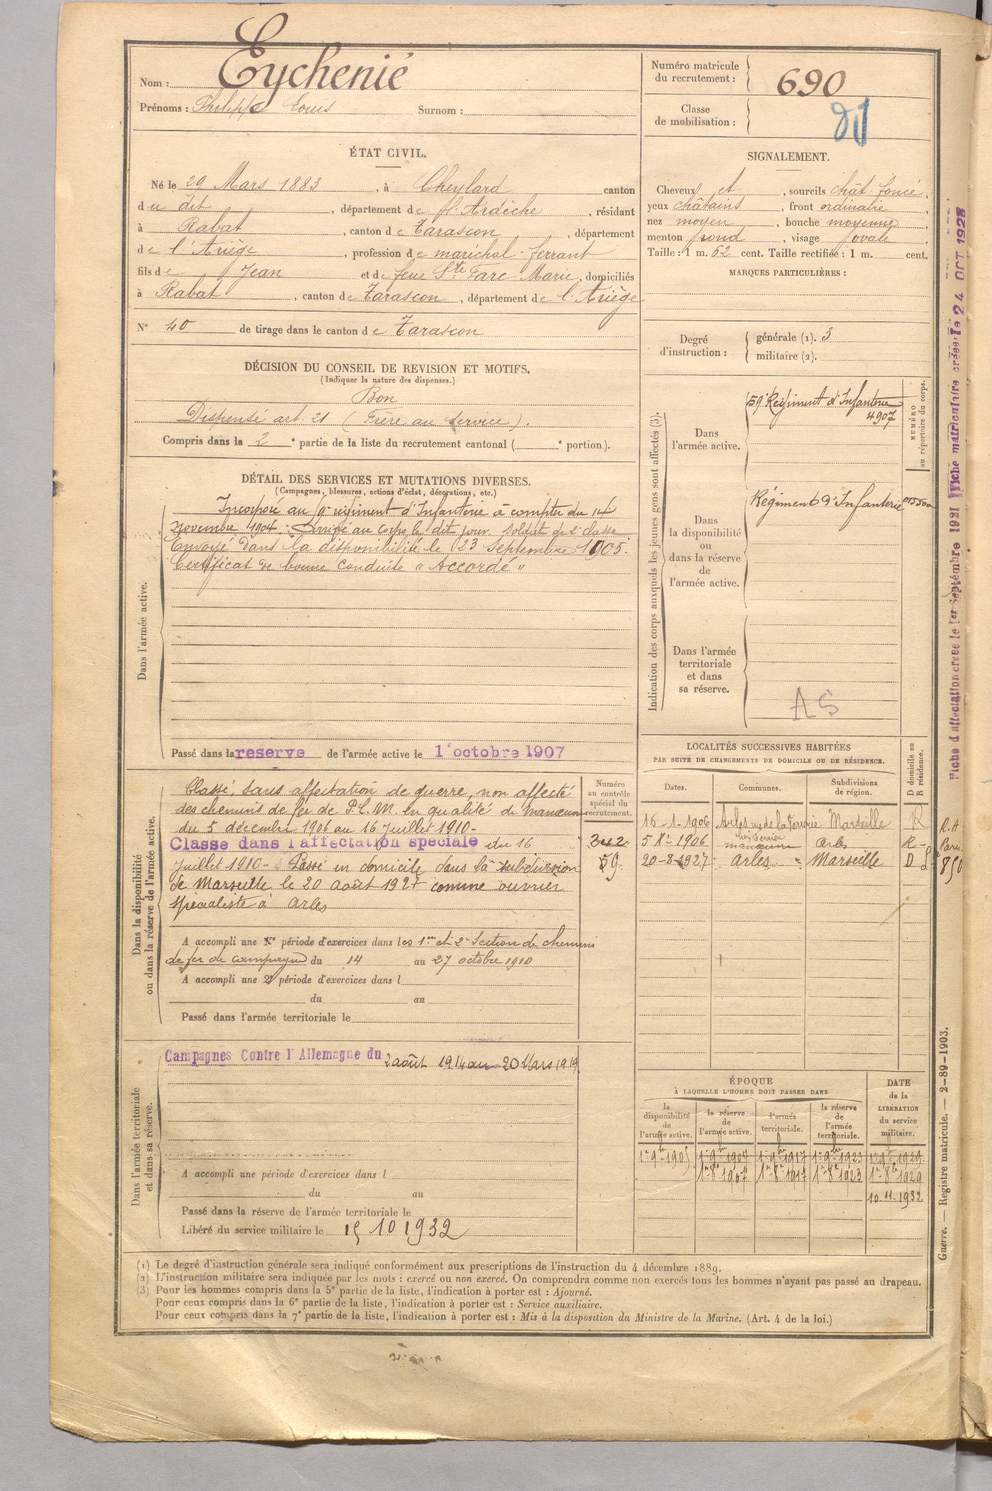 Nom : Eychenié
Prénoms : Philippe Louis Surnom :
Numéro matricule du recrutement : 690
Classe de mobilisation :
ÉTAT CIVIL.
Né le 29 Mars 1883, à Cheylard canton
du dit, département de l'Ardèche, résidant
à Rabat, canton de Tarascon, département
de l'Ariège, profession de maréchal-ferrant
fils de Jean et de feue Marie, domiciliés
à Rabat, canton de Tarascon, département de l'Ariège
N° 40 de tirage dans le canton de Tarascon
SIGNALEMENT.
Cheveux et, sourcils chât. foncé,
yeux châtains, front ordinaire,
nez moyen, bouche moyenne,
menton rond, visage ovale
Taille : 1 m. 62 cent. Taille rectifiée : 1 m. cent.
MARQUES PARTICULIÈRES :
Degré d'instruction : générale (1). 3
militaire (2).
DÉCISION DU CONSEIL DE REVISION ET MOTIFS.
(Indiquer la nature des dispenses.)
Bon
Dispensé art. 21 (Frère au service).
Compris dans la 2e partie de la liste du recrutement cantonal ( e portion).
DÉTAIL DES SERVICES ET MUTATIONS DIVERSES.
(Campagnes, blessures, actions d'éclat, décorations, etc.)
Dans l'armée active.
Incorporé au 9e régiment d'Infanterie à compter du 14
Novembre 1904. Arrivé au corps le dit jour. Soldat de 2e classe
Envoyé dans la disponibilité le 23 Septembre 1905.
Certificat de bonne conduite "Accordé"
Passé dans la reserve de l'armée active le 1 octobre 1907
Indication des corps auxquels les jeunes gens sont affectés (3).
NUMÉRO au répertoire du corps.
Dans l'armée active.
59e Régiment d'Infanterie
4907
Dans la disponibilité ou dans la réserve de l'armée active.
Régiment d'Infanterie
Dans l'armée territoriale et dans sa réserve.
AS
Dans la disponibilité ou dans la réserve de l'armée active.
Classé, sans affectation de guerre, non affecté
des chemins de fer de P.L.M. en qualité de
du 5 décembre 1906 au 16 juillet 1910-
Classe dans l'affectation spéciale du 16
juillet 1910- Passé en domicile dans la subdivision
de Marseille le 20 août 1927 comme ouvrier
spécialiste à Arles
Numéro au contrôle spécial du recrutement.
312
59
A accompli une 1e période d'exercices dans les 1re et 2e Section de chemins
de fer de campagne du 14 au 27 octobre 1910
A accompli une 2e période d'exercices dans l
du au
Passé dans l'armée territoriale le
LOCALITÉS SUCCESSIVES HABITÉES
PAR SUITE DE CHANGEMENTS DE DOMICILE OU DE RÉSIDENCE.
Dates. Communes. Subdivisions de région. D domicile ou R résidence.
16-1-1906 Arles Marseille R
5 Xe 1906 Arles R
20-8-1927 Arles Marseille D
Dans l'armée territoriale et dans sa réserve.
Campagnes Contre l'Allemagne du 2 août 1914 au 20 Mars 1919
A accompli une période d'exercices dans l
du au
Passé dans la réserve de l'armée territoriale le
Libéré du service militaire le 15 10 1932
ÉPOQUE
À LAQUELLE L'HOMME DOIT PASSER DANS
la disponibilité de l'armée active. la réserve de l'armée active. l'armée territoriale. la réserve de l'armée territoriale. DATE de la LIBÉRATION du service militaire.
1er 9bre 1905 1er 9bre 1907 1er 9bre 1917 1er 9bre 1923 1er 9bre 1929
1er 8bre 1907 1er 8bre 1917 1er 8bre 1923 1er 8bre 1929
10-11-1932
(1) Le degré d'instruction générale sera indiqué conformément aux prescriptions de l'instruction du 4 décembre 1889.
(2) L'instruction militaire sera indiquée par les mots : exercé ou non exercé. On comprendra comme non exercés tous les hommes n'ayant pas passé au drapeau.
(3) Pour les hommes compris dans la 5e partie de la liste, l'indication à porter est : Ajourné.
Pour ceux compris dans la 6e partie de la liste, l'indication à porter est : Service auxiliaire.
Pour ceux compris dans la 7e partie de la liste, l'indication à porter est : Mis à la disposition du Ministre de la Marine. (Art. 4 de la loi.)
Guerre. — Registre matricule. — 2-89-1903.
Fiche d'affectation créée le 1er Septembre 1921 Fiche matriculaire créée le 24 OCT 1928